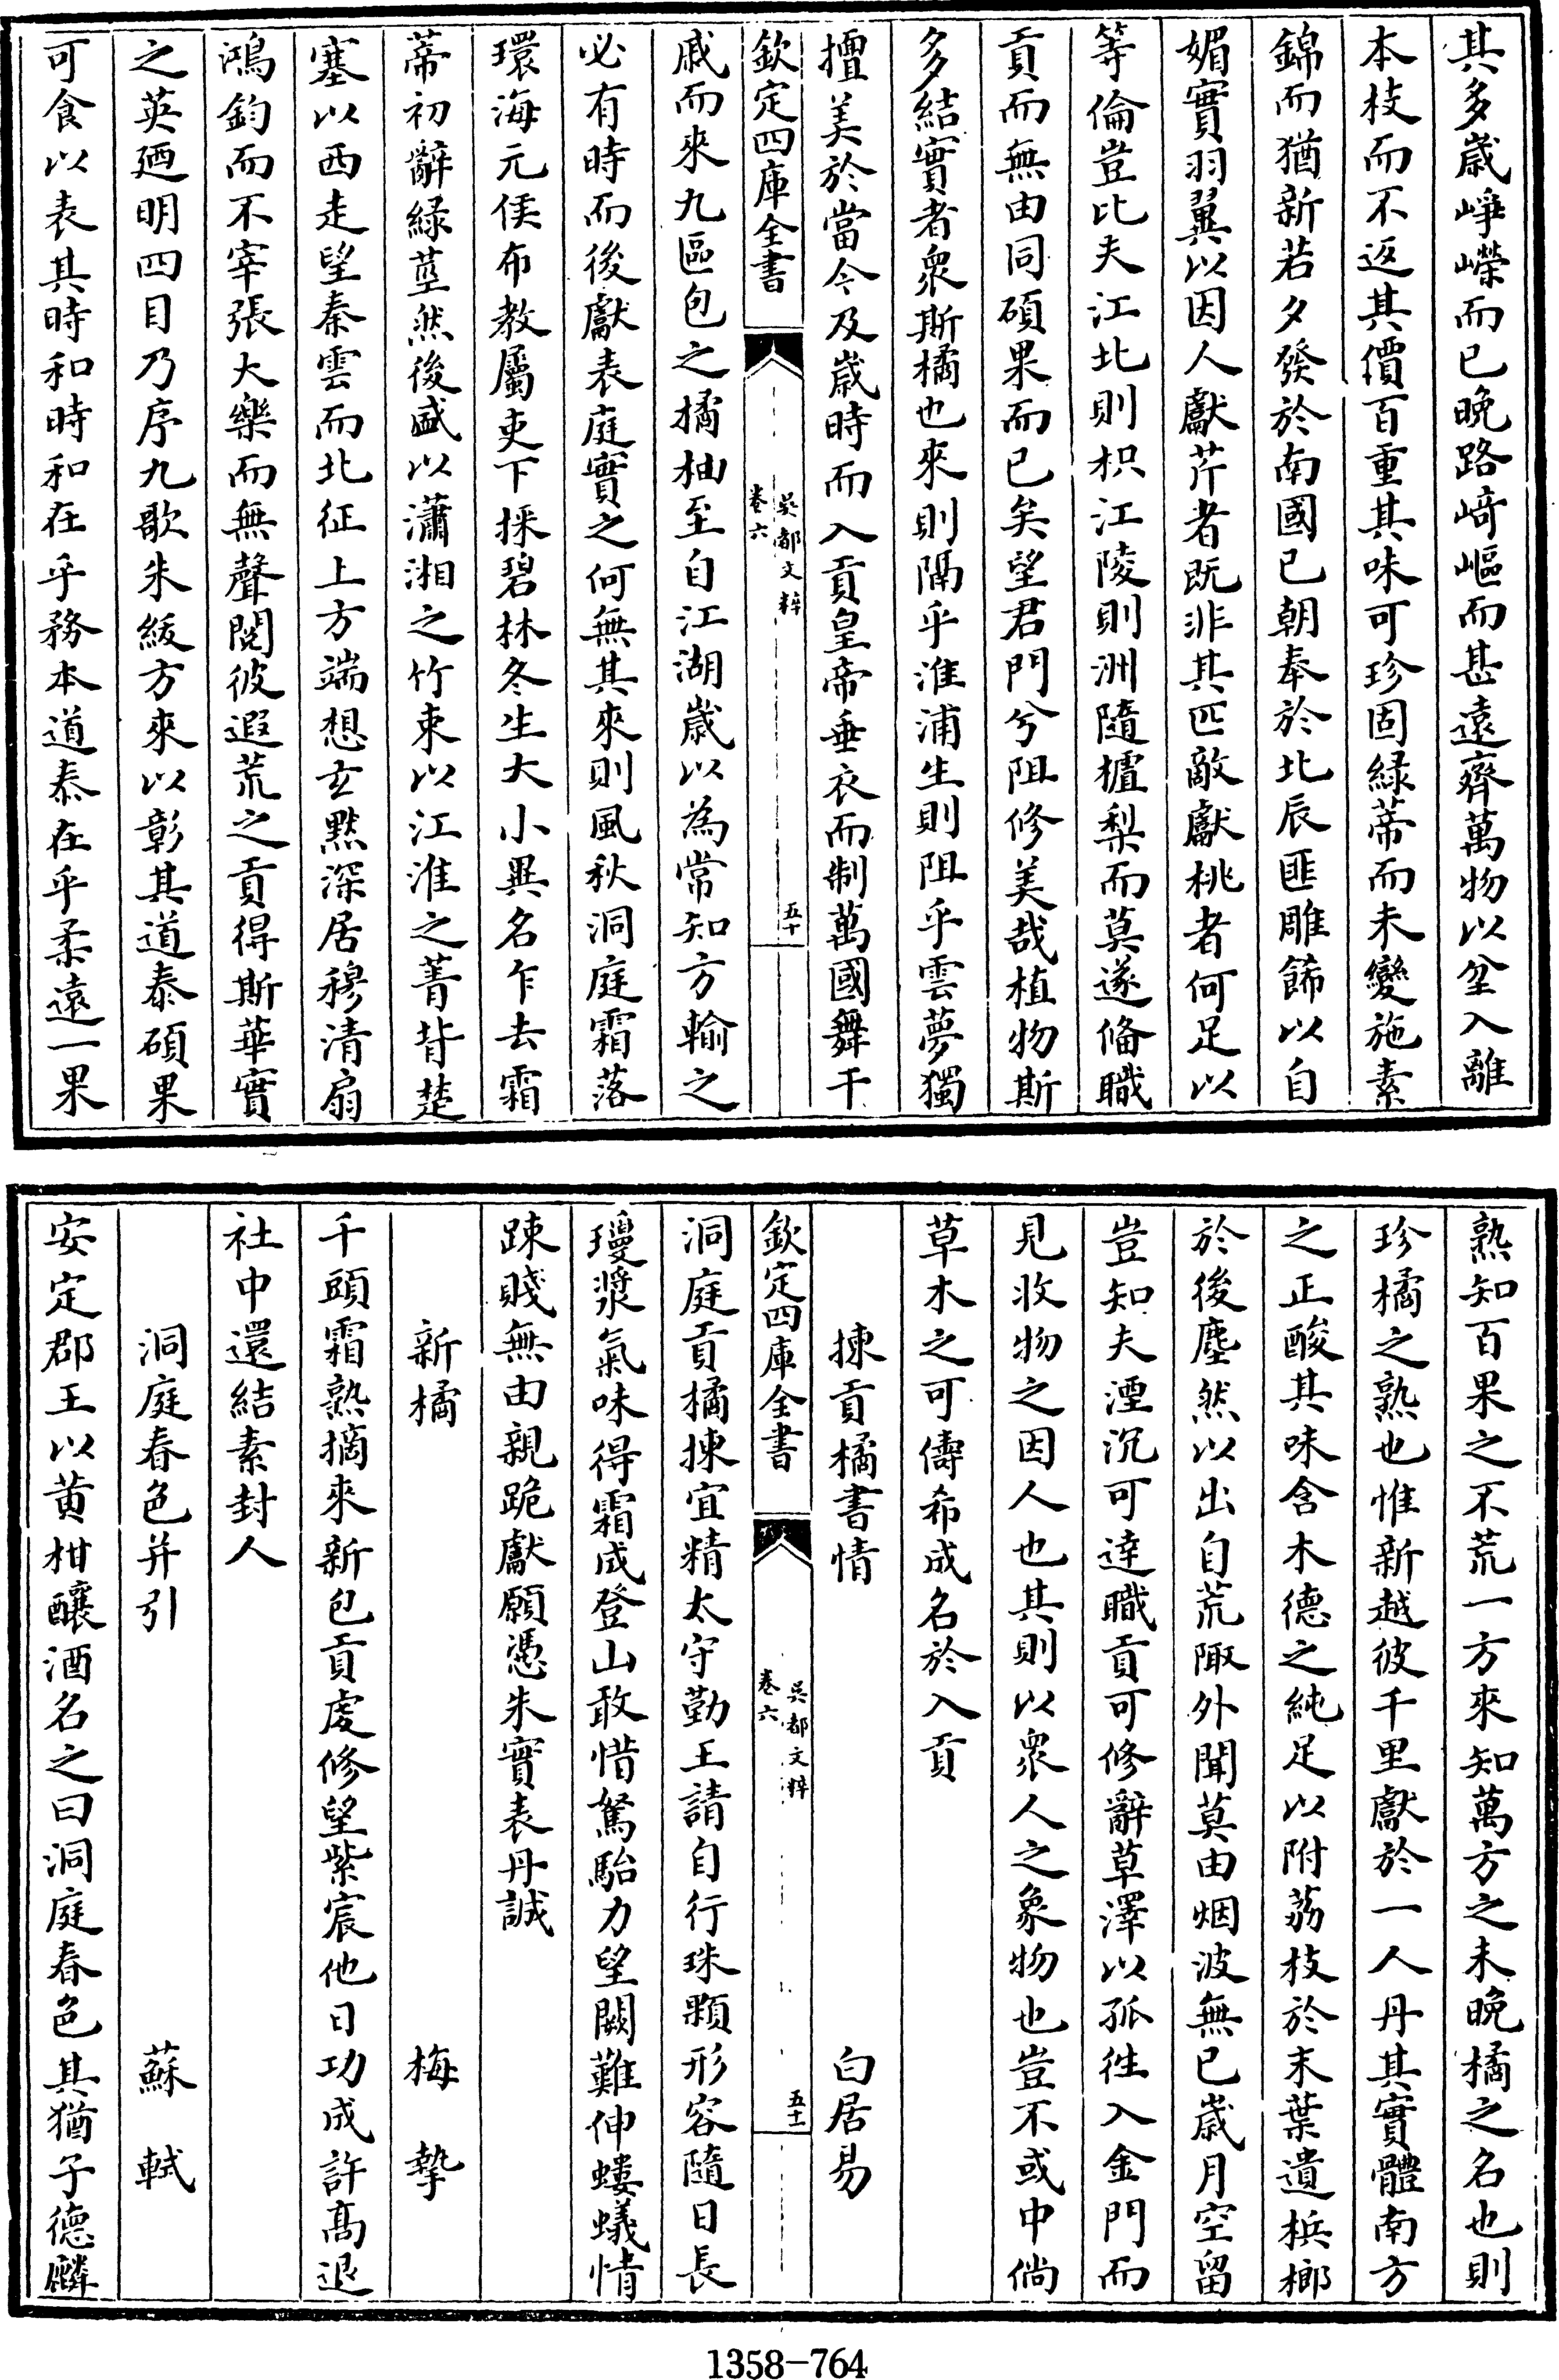 其多歳崢嶸而已晚路﨑嶇而甚遠齊萬物以坌入離
本枝而不返其價百重其味可珍固緑蒂而未變施素
錦而猶新若夕發於南國已朝奉於北辰匪雕飾以自
媚實羽翼以因人獻芹者既非其匹敵獻桃者何足以
等倫豈比夫江北則枳江陵則洲隨攄梨而莫遂脩職
貢而無由同碩果而已矣望君門兮阻修美哉植物斯
多結實者衆斯橘也來則隔乎淮浦生則阻乎雲夢獨
擅美於當今及歳時而入貢皇帝垂衣而制萬國舞干
欽定四庫全書
吳都文粹
卷六
五十
戚而來九區包之橘柚至自江湖歳以為常知方輸之
必有時而後獻表庭實之何無其來則風秋洞庭霜落
環海元侯布教屬吏下採碧林冬生大小異名乍去霜
蒂初辭緑莖然後盛以瀟湘之竹束以江淮之菁背楚
塞以西走望秦雲而北征上方端想玄黙深居穆清扇
鴻鈞而不宰張大樂而無聲閱彼遐荒之貢得斯華實
之英廼明四目乃序九歌朱紱方來以彰其道泰碩果
可食以表其時和時和在乎務本道泰在乎柔逺一果
熟知百果之不荒一方來知萬方之未晚橘之名也則
珍橘之熟也惟新越彼千里獻於一人丹其實體南方
之正酸其味含木德之純足以附荔枝於末葉遺檳榔
於後塵然以出自荒陬外聞莫由烟波無已歳月空留
豈知夫湮沉可達職貢可修辭草澤以孤徃入金門而
見收物之因人也其則以衆人之象物也豈不或中倘
草木之可儔希成名於入貢
揀貢橘書情 白居易
欽定四庫全書
吳都文粹
卷六
五十一
洞庭貢橘揀宜精太守勤王請自行珠顆形容隨日長
瓊漿氣味得霜成登山敢惜駑駘力望闕難伸螻蟻情
踈賤無由親跪獻願憑朱實表丹誠
新橘 梅摯
千頭霜熟摘來新包貢處修望紫宸他日功成許髙退
社中還結素封人
洞庭春色并引 蘇軾
安定郡王以黄柑釀酒名之曰洞庭春色其猶子德麟
1358-764